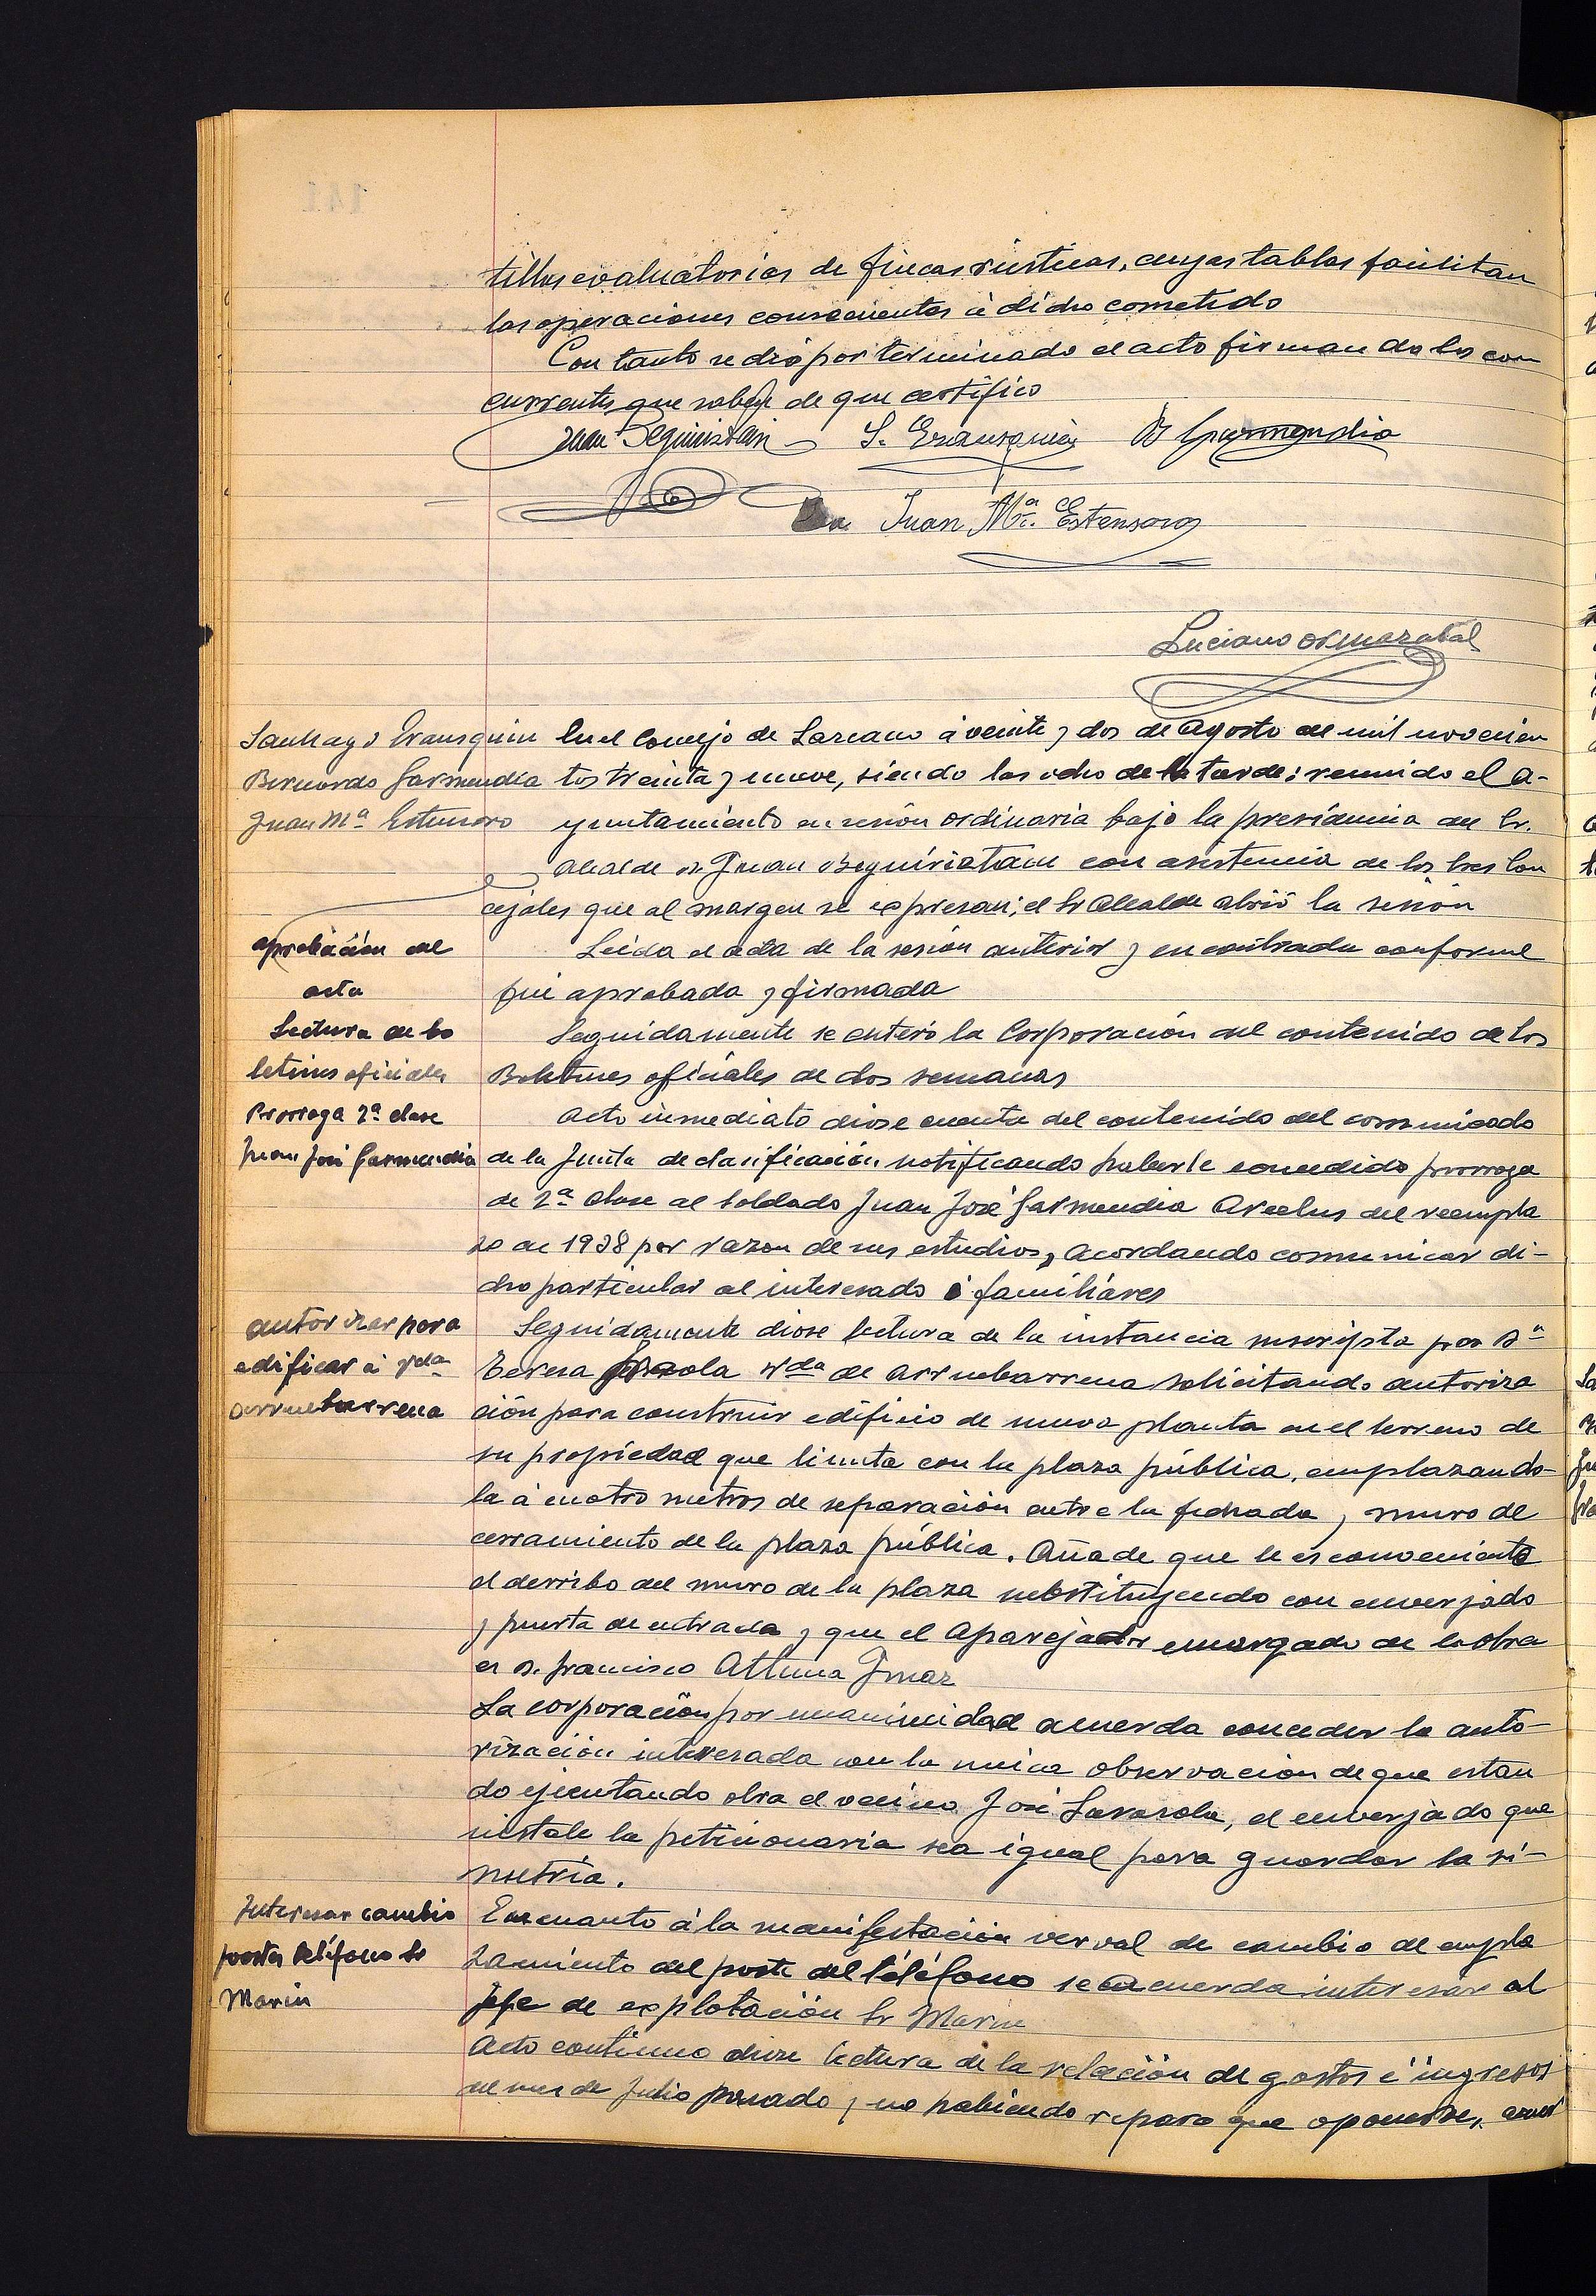 tillas evaluatorias de fincas rústicas, cuyas tablas facilitan
las operaciones consecuentes á dicho cometido
Con tanto se dió por terminado el acto firmando los con
currentes que saben de que certifico
Juan Beguiristain S. Erausquin B Garmendia
Juan Mª. Estensoro
Luciano Ormazabal
Santiago Erausquin
Bernardo Garmendia
Juan Mª Estensoro
En el Concejo de Lazcano á veinte y dos de Agosto de mil novecien
tos treinta y nueve, siendo las ocho de la tarde: reunido el A-
yuntamiento en sesión ordinaria bajo la presidencia del Sr.
Alcalde D. Juan Beguiristain con asistencia de los tres Con
cejales que al margen se expresan; el Sr Alcalde abrió la sesión
aprobación del
acta
Leida el acta de la sesión anterior y encontrada conforme
fué aprobada y firmada
Lectura de bo
letines oficiales
Seguidamente se enteró la Corporación del contenido de los
Boletines oficiales de dos semanas
Prorroga 2ª clase
Juan José Garmendia
Acto inmediato diose cuenta del contenido del comunicado
de la Junta de clasificación notificando haberle concedido prorroga
de 2ª clase al soldado Juan José Garmendia Arcelus del reempla
zo de 1938 por razon de sus estudios, acordando comunicar di-
cho particular al interesado é familiares
autorizar para
edificar á Vda
Arruebarrena
Seguidamente diose lectura de la instancia suscripta por Dª
Teresa Vda de Arruebarrena solicitando autoriza
ción para construir edificio de nueva planta en el terreno de
su propiedad que limita con la plaza pública, emplazando-
la á cuatro metros de separación entre la fachada y muro de
cerramiento de la plaza pública. Añade que le es conveniente
el derribo del muro de la plaza substituyendo con enverjado
y puerta de entrada y que el Aparejador encargado de la obra
es D. Francisco Altuna
La corporación por unanimidad acuerda conceder la auto-
rización interesada con la unica observación de que estan
do ejecutando obra el vecino José Lasarola, el enverjado que
instale la peticionaria sea igual para guardar la si-
metria.
Interesar cambio
poste teléfono Sr
Marin
En cuanto á la manifestación verval de cambio de empla
zamiento del poste del téléfono se acuerda interesar al
jefe de explotación Sr Marin
Acto continuo diose lectura de la relación de gastos é ingresos
del mes de Julio pasado y no habiendo reparo que oponerse,